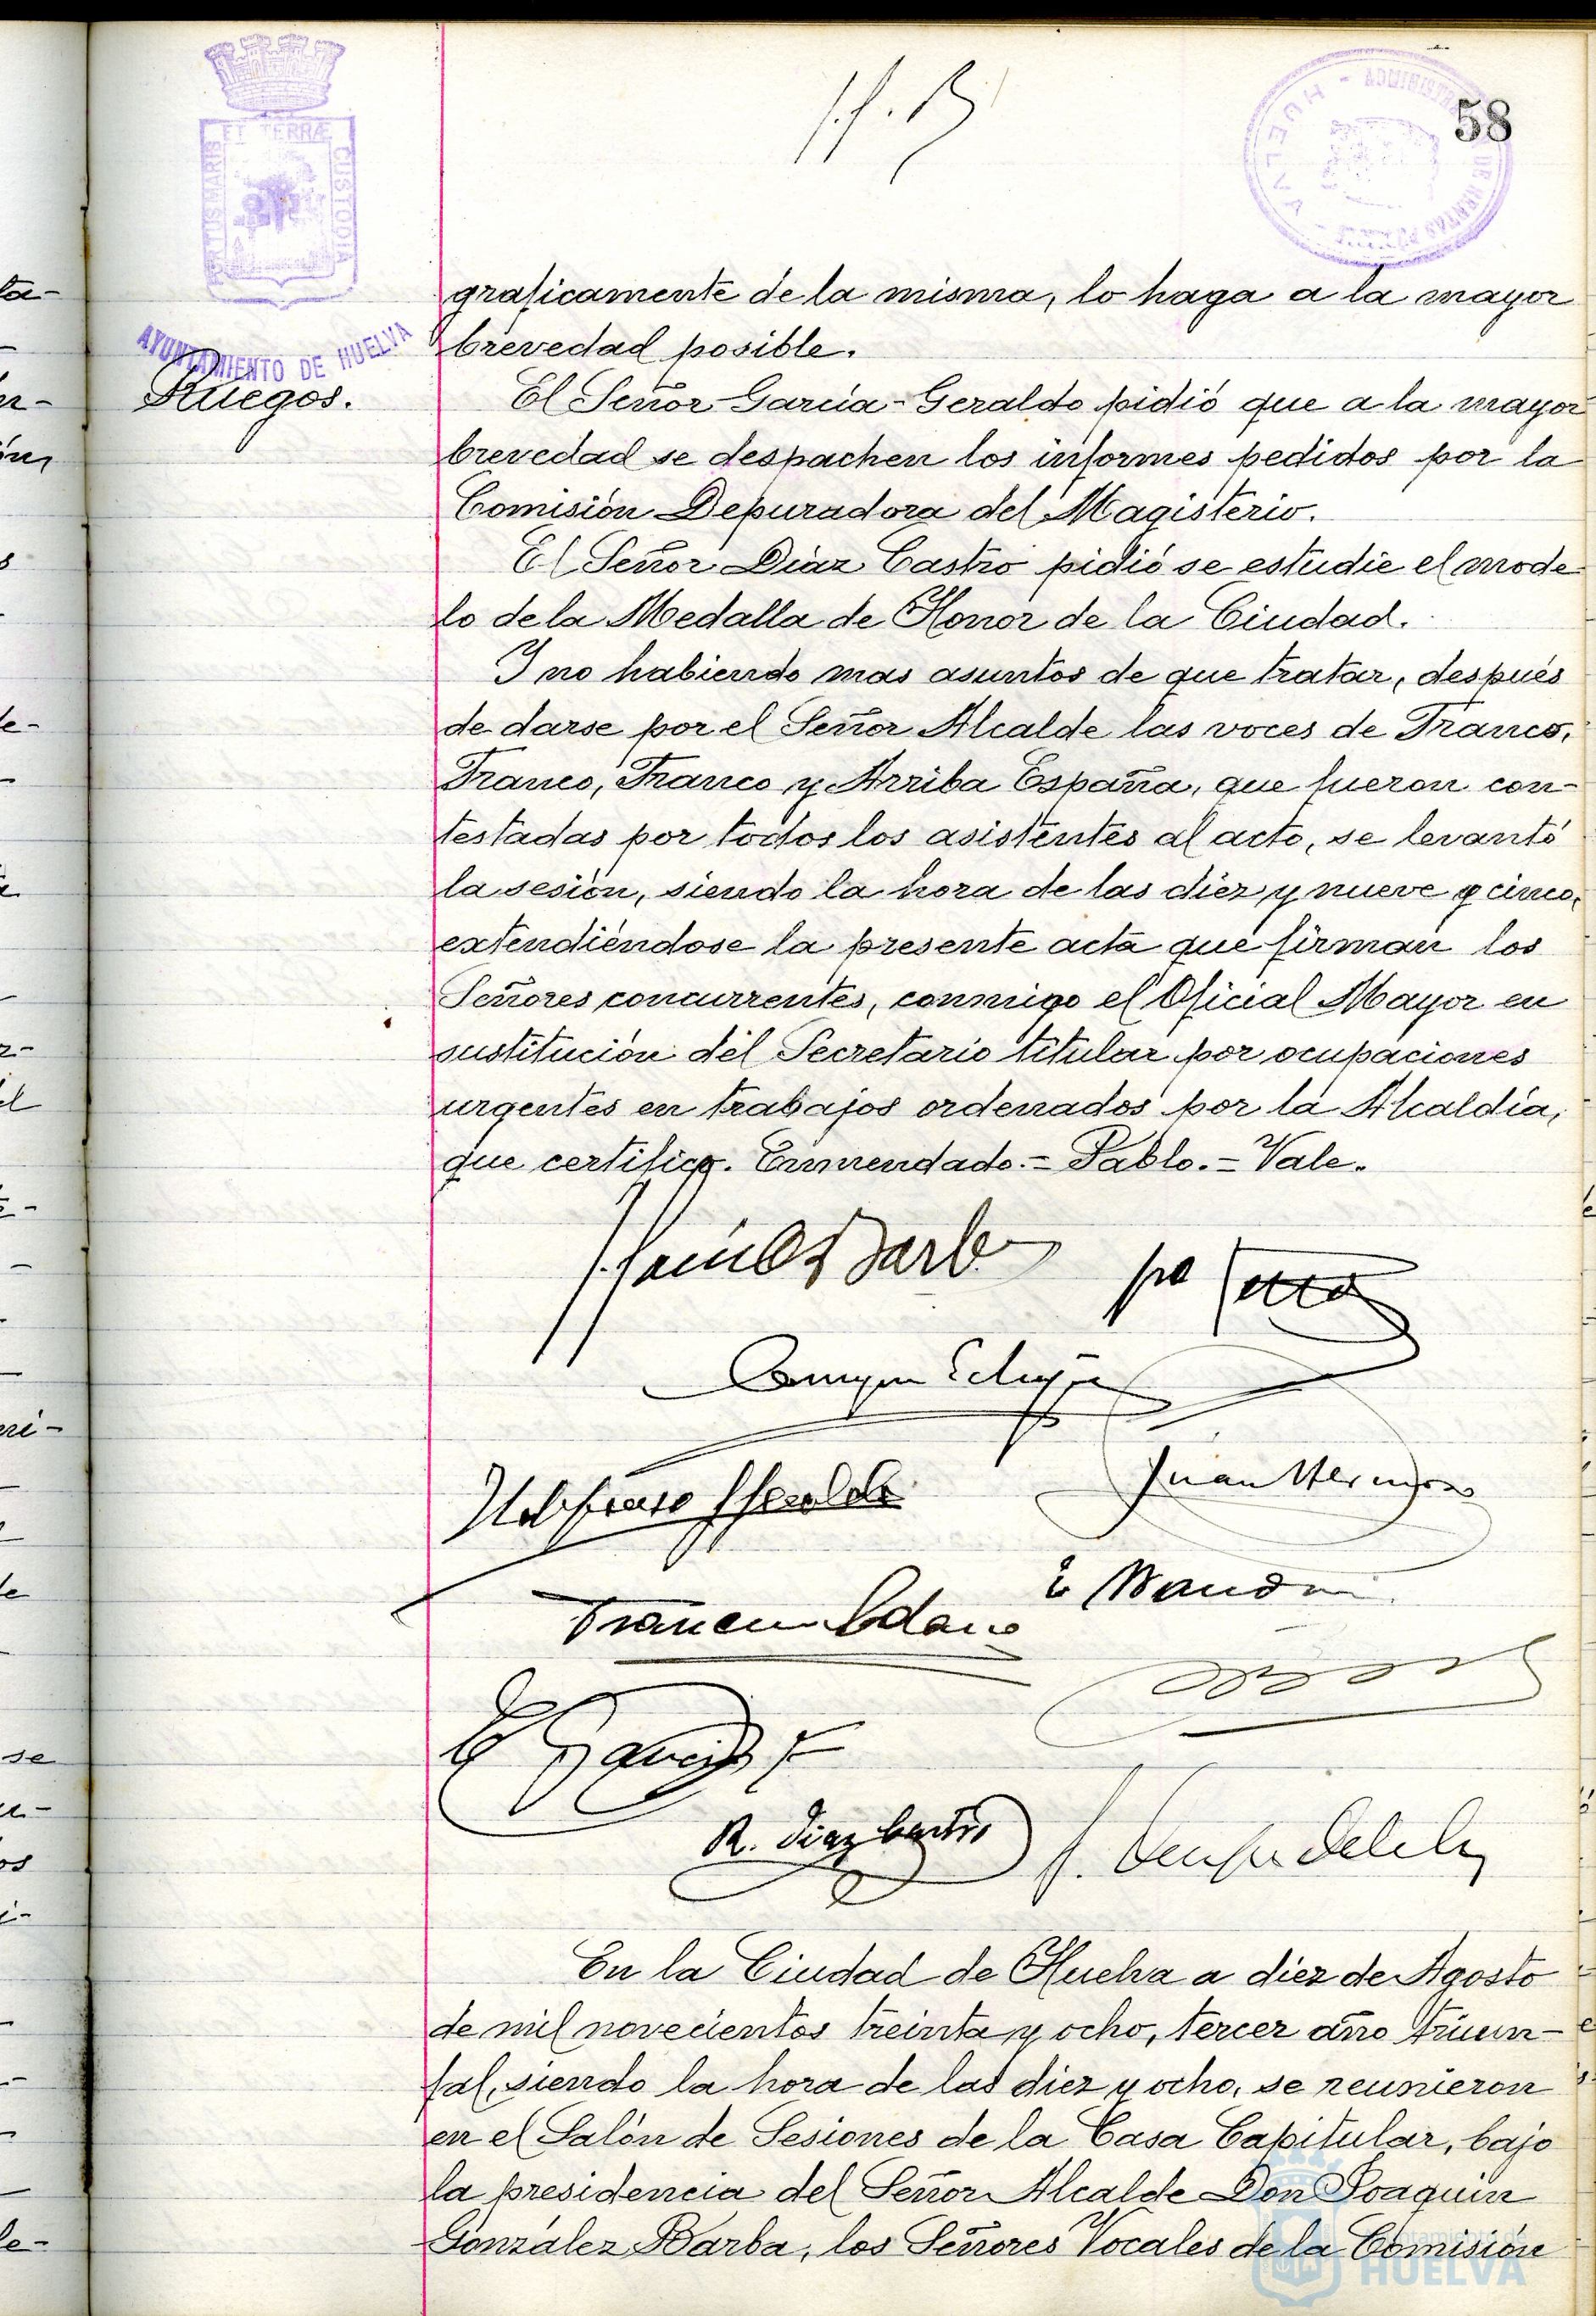 58
ET TERRÆ
CUSTODIA
AYUNTAMIENTO DE HUELVA
HUELVA
graficamente de la misma, lo haga a la mayor
brevedad posible.
Ruegos.
El Señor Garcia-Geraldo pidió que a la mayor
brevedad se despachen los informes pedidos por la
Comisión Depuradora del Magisterio.
El Señor Diaz Castro pidió se estudie el mode
lo de la Medalla de Honor de la Ciudad.
Y no habiendo mas asuntos de que tratar, después
de darse por el Señor Alcalde las voces de Franco,
Franco, Franco y Arriba España, que fueron con-
testadas por todos los asistentes al acto, se levantó
la sesión, siendo la hora de las diez y nueve y cinco,
extendiéndose la presente acta que firman los
Señores concurrentes, conmigo el Oficial Mayor en
sustitución del Secretario titular por ocupaciones
urgentes en trabajos ordenados por la Alcaldía,
que certifico. Enmendado.= Pablo.= Vale.
Barba
Juan
R. Diaz Castro
En la Ciudad de Huelva a diez de Agosto
de mil novecientos treinta y ocho, tercer año triun-
fal, siendo la hora de las diez y ocho, se reunieron
en el Salón de Sesiones de la Casa Capitular, bajo
la presidencia del Señor Alcalde Don Joaquin
González Barba, los Señores Vocales de la Comisión
Ayuntamiento de
HUELVA